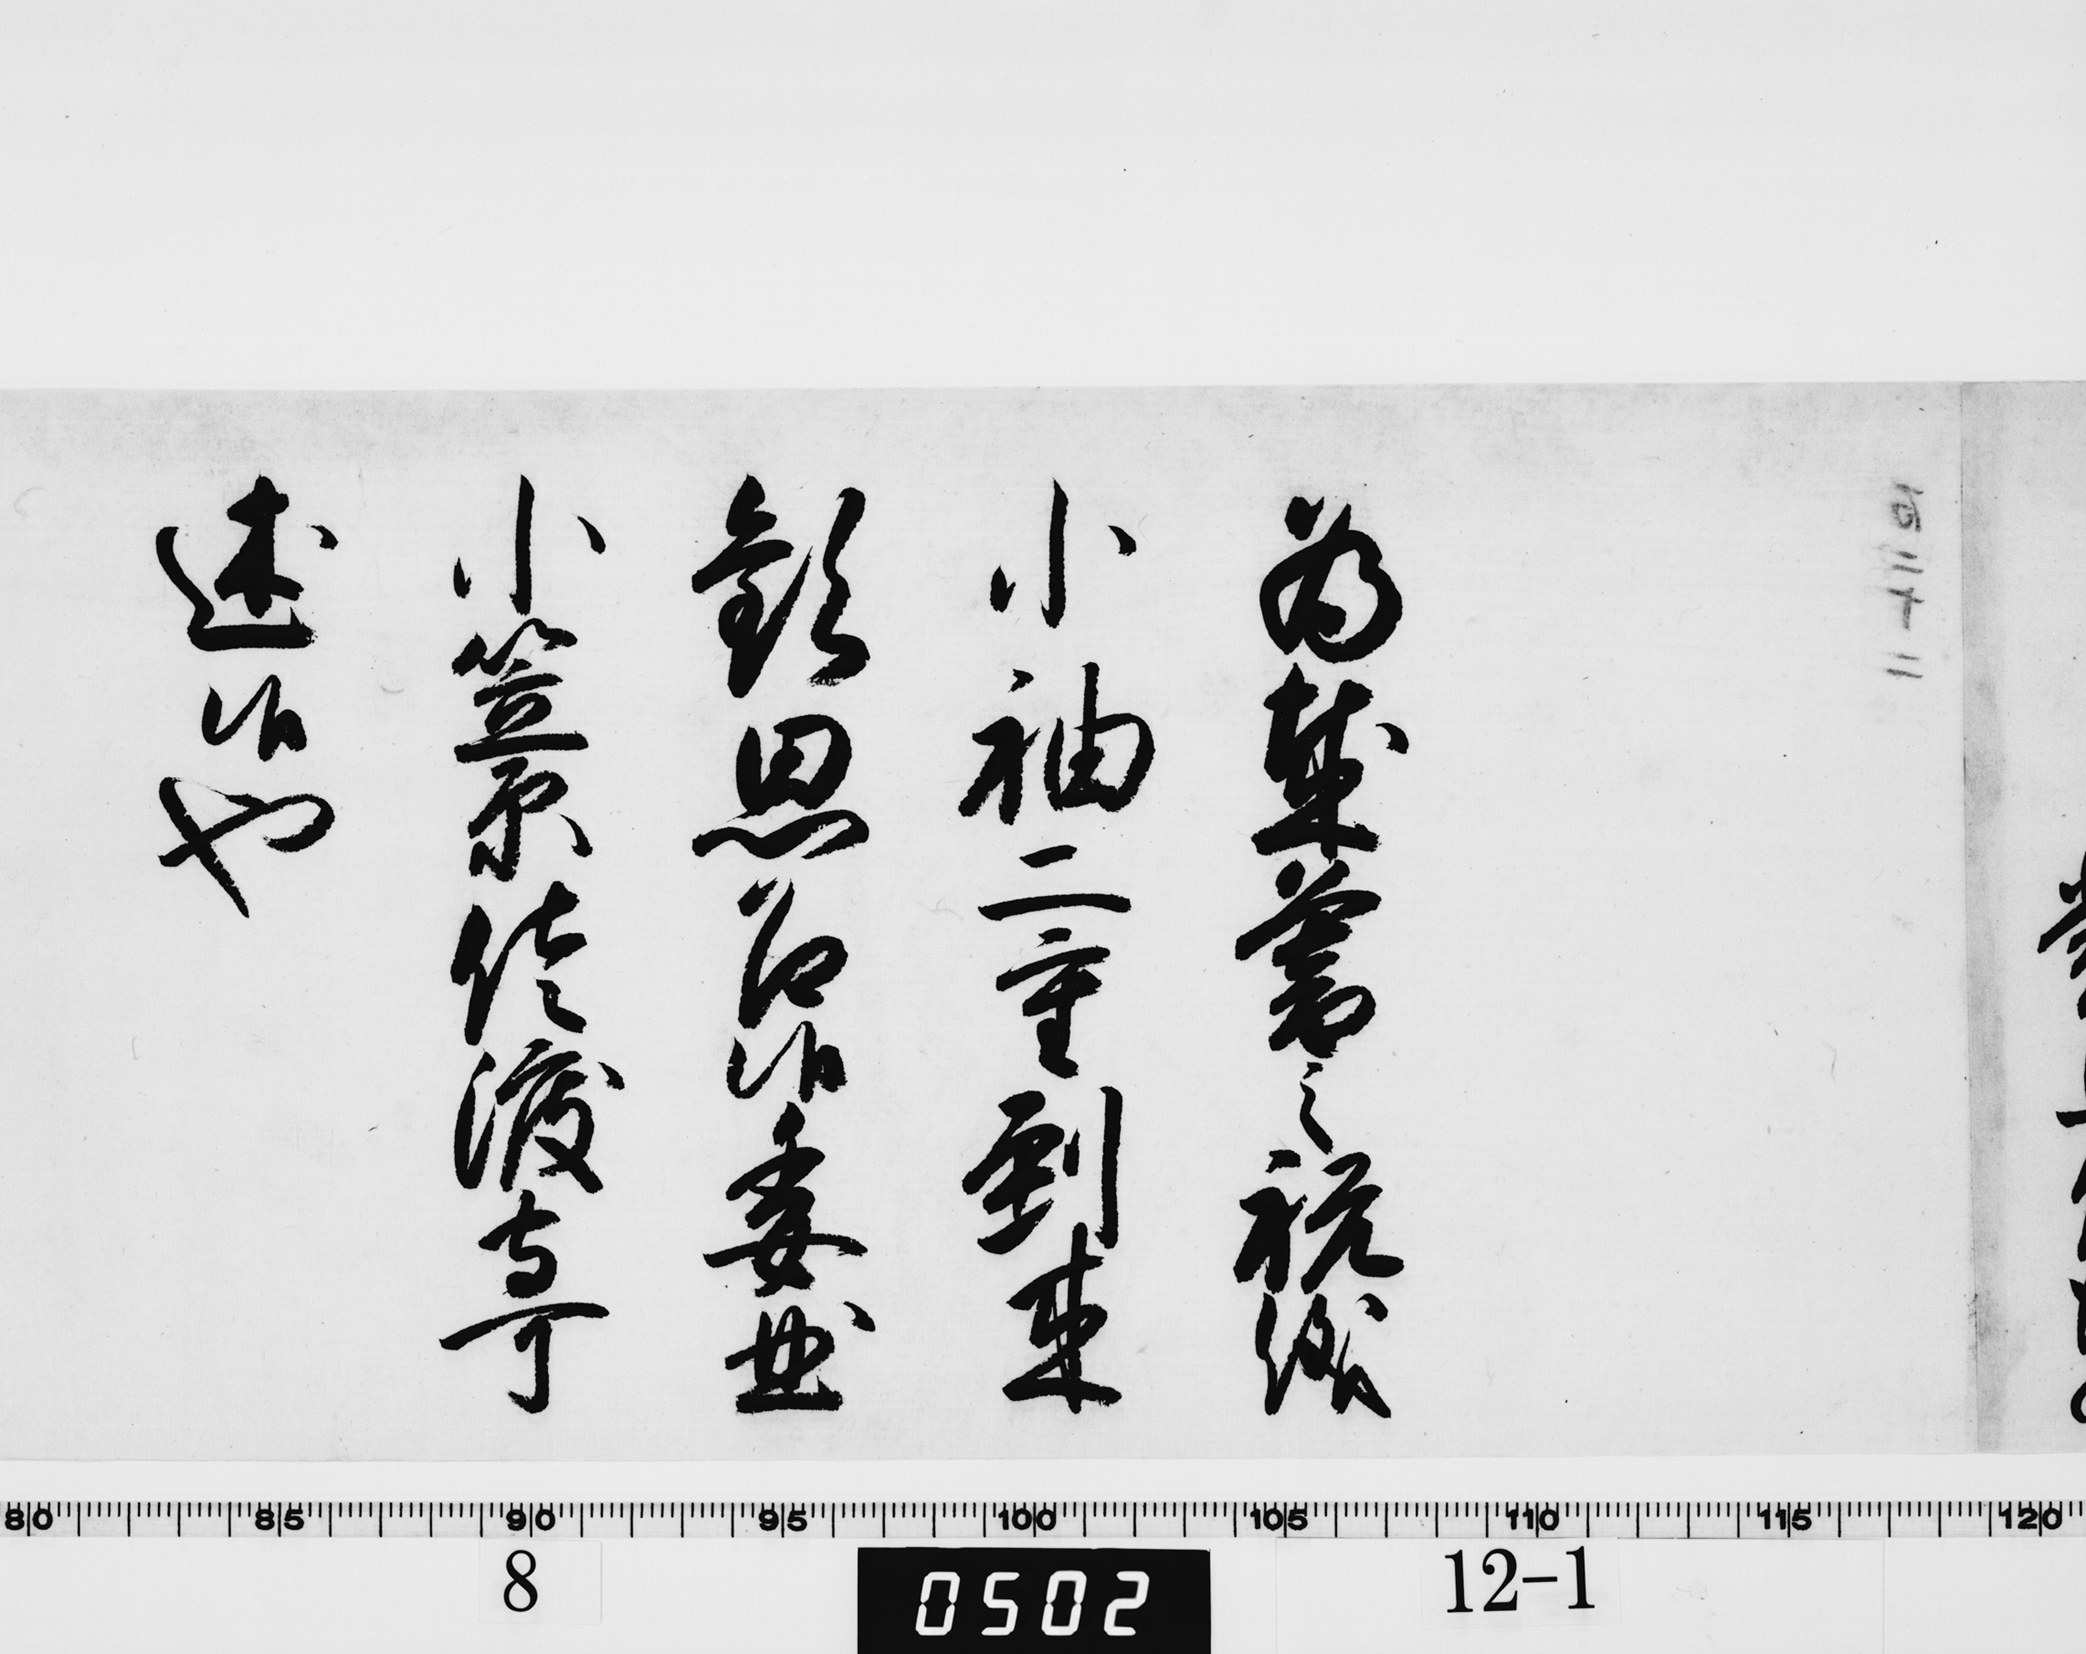 為歳暮之祝儀
小袖二重到来
歓思召候委曲
小笠原佐渡守可
述候也
80 85 90 95 100 105 110 115 120
8 0502 12-1